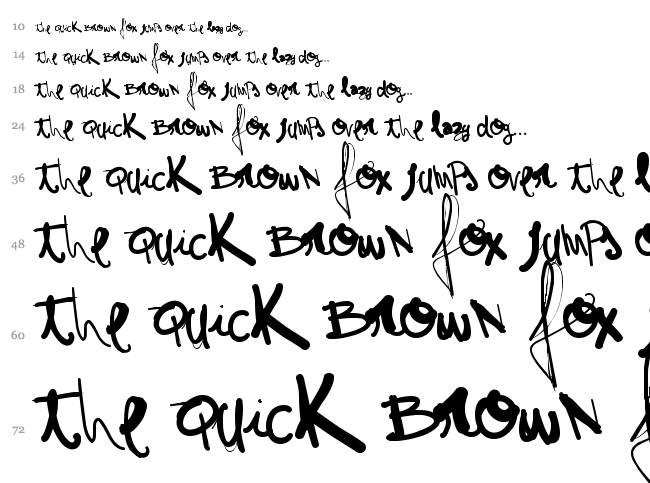 10 the quicK BROWN fox jumps over the lazy dog...
14 the quicK BROWN fox jumps over the lazy dog...
18 the quicK BROWN fox jumps over the lazy dog...
24 the quicK BROWN fox jumps over the lazy dog...
36 the quicK BROWN fox jumps over the l
48 the quicK BROWN fox jumps
60 the quicK BROWN fox
72 the quicK BROWN